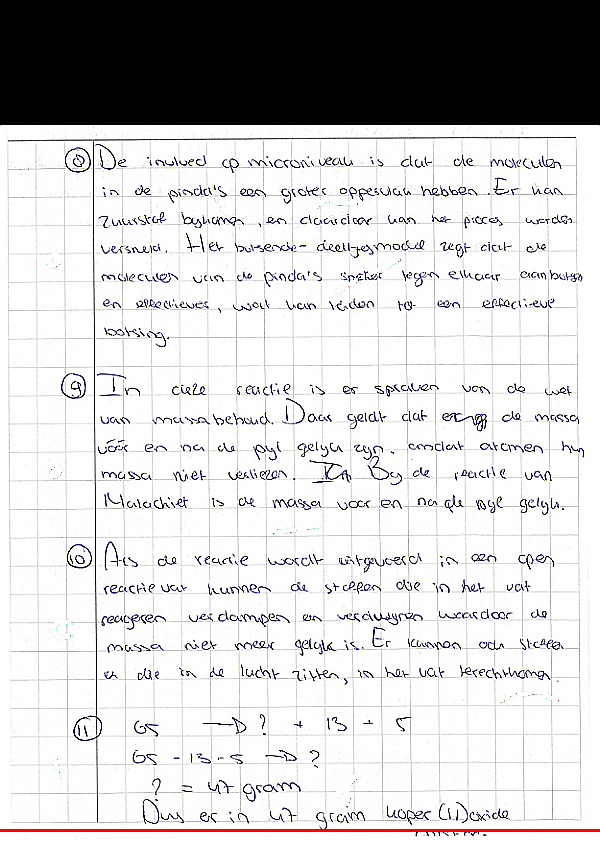 8 De invloed op microniveau is dat de moleculen
in de pinda's een groter oppervlak hebben. Er kan
zuurstof bijkomen, en daardoor kan het proces worden
versneld. Het botsende-deeltjesmodel zegt dat de
moleculen van de pinda's sneller tegen elkaar aanbotsen
en effectiever, wat kan leiden tot een effectieve
botsing.
9 In deze reactie is er sprake van de wet
van massabehoud. Daar geldt dat de massa
vóór en na de pijl gelijk zijn, omdat atomen hun
massa niet verliezen. Bij de reactie van
Malachiet is de massa voor en na de pijl gelijk.
10 Als de reactie wordt uitgevoerd in een open
reactievat kunnen de stoffen die in het vat
reageren verdampen en verdwijnen waardoor de
massa niet meer gelijk is. Er kunnen ook stoffen
die in de lucht zitten, in het vat terechtkomen.
11 65 → ? + 13 + 5
65 - 13 - 5 → ?
? = 47 gram
Dus er in 47 gram koper(II)oxide